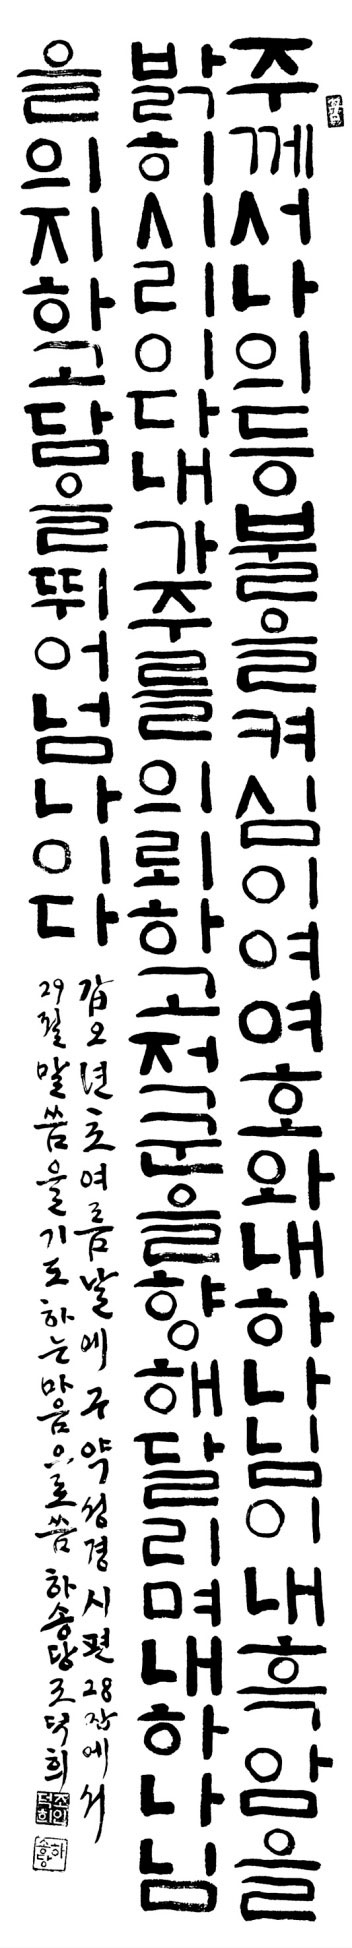 주께서나의등불을켜심이여여호와내하나님이내흑암을
밝히시리이다내가주를의뢰하고적군을향해달리며내하나님
을의지하고담을뛰어넘나이다
갑오년초여름날에구약성경시편28장에서
29절말씀을기도하는마음으로씀 하송당조덕희
조인덕희
하송당